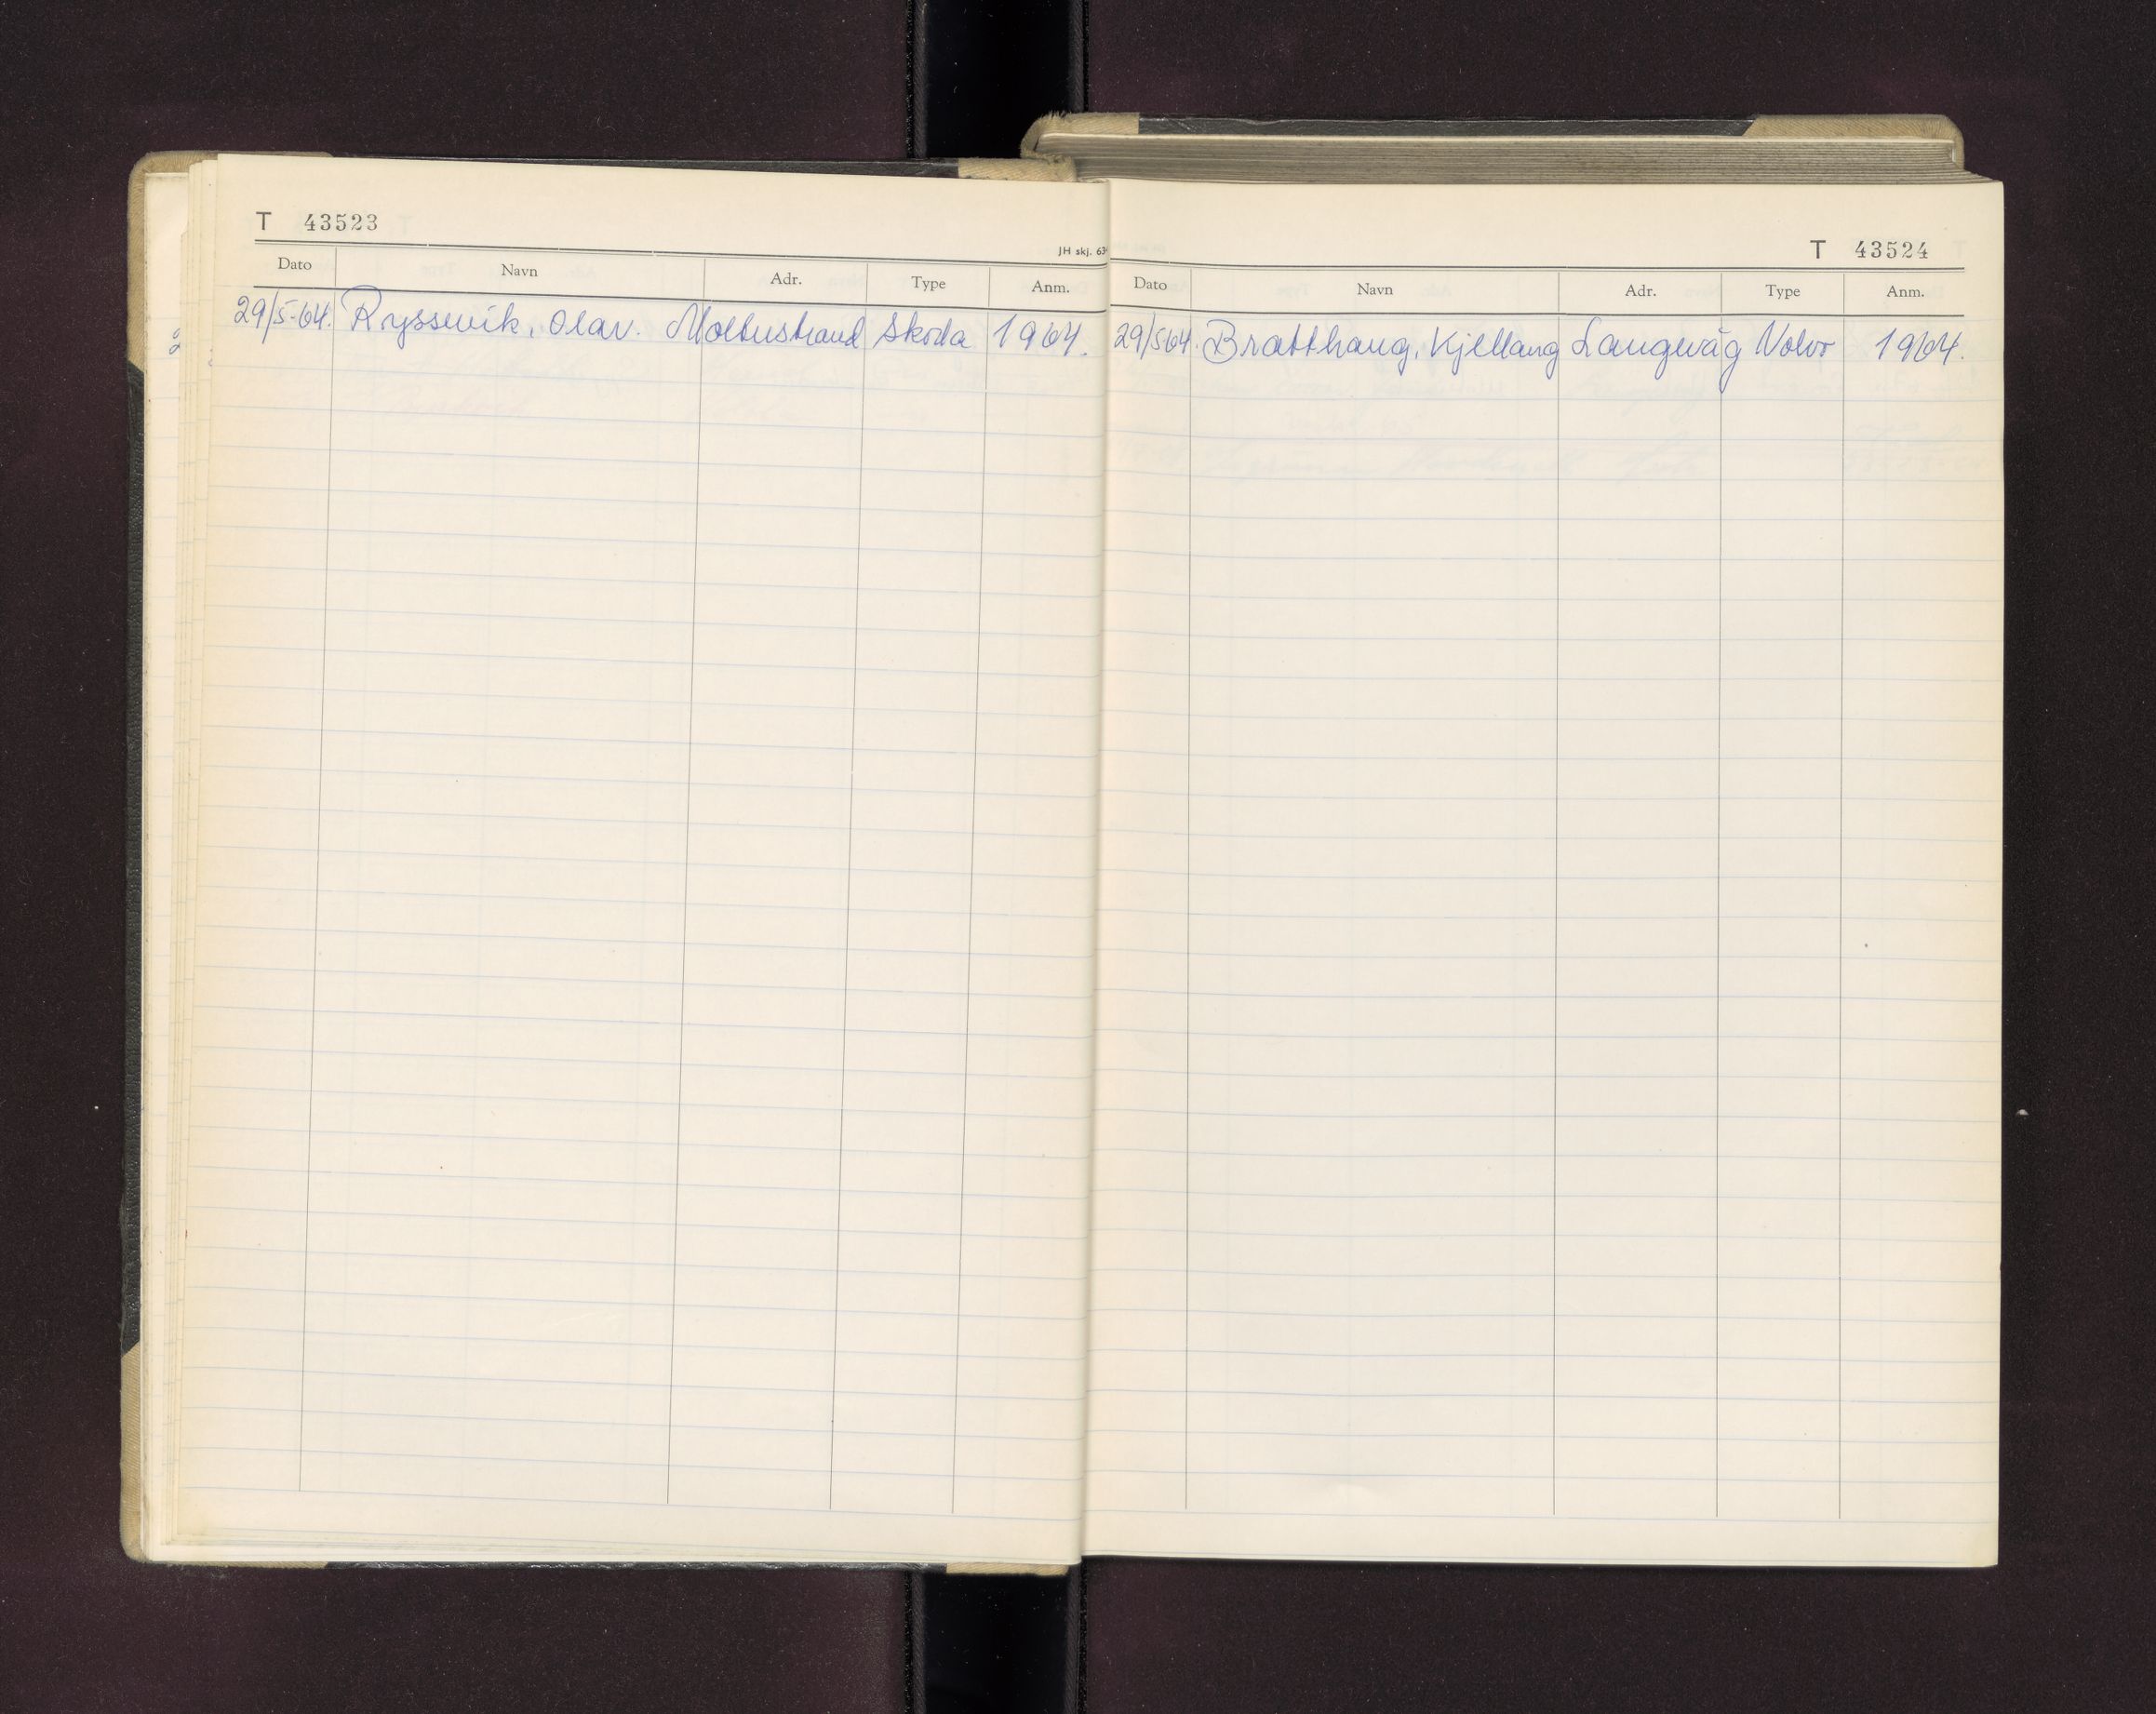 T 43523
JH skj. 63
Dato Navn Adr. Type Anm.
29/5-64. Ryssevik, Olav. Moltustrand Skoda 1964.
T 43524
Dato Navn Adr. Type Anm.
29/5 64. Bratthaug, Kjellaug Langevåg Volvo 1964.